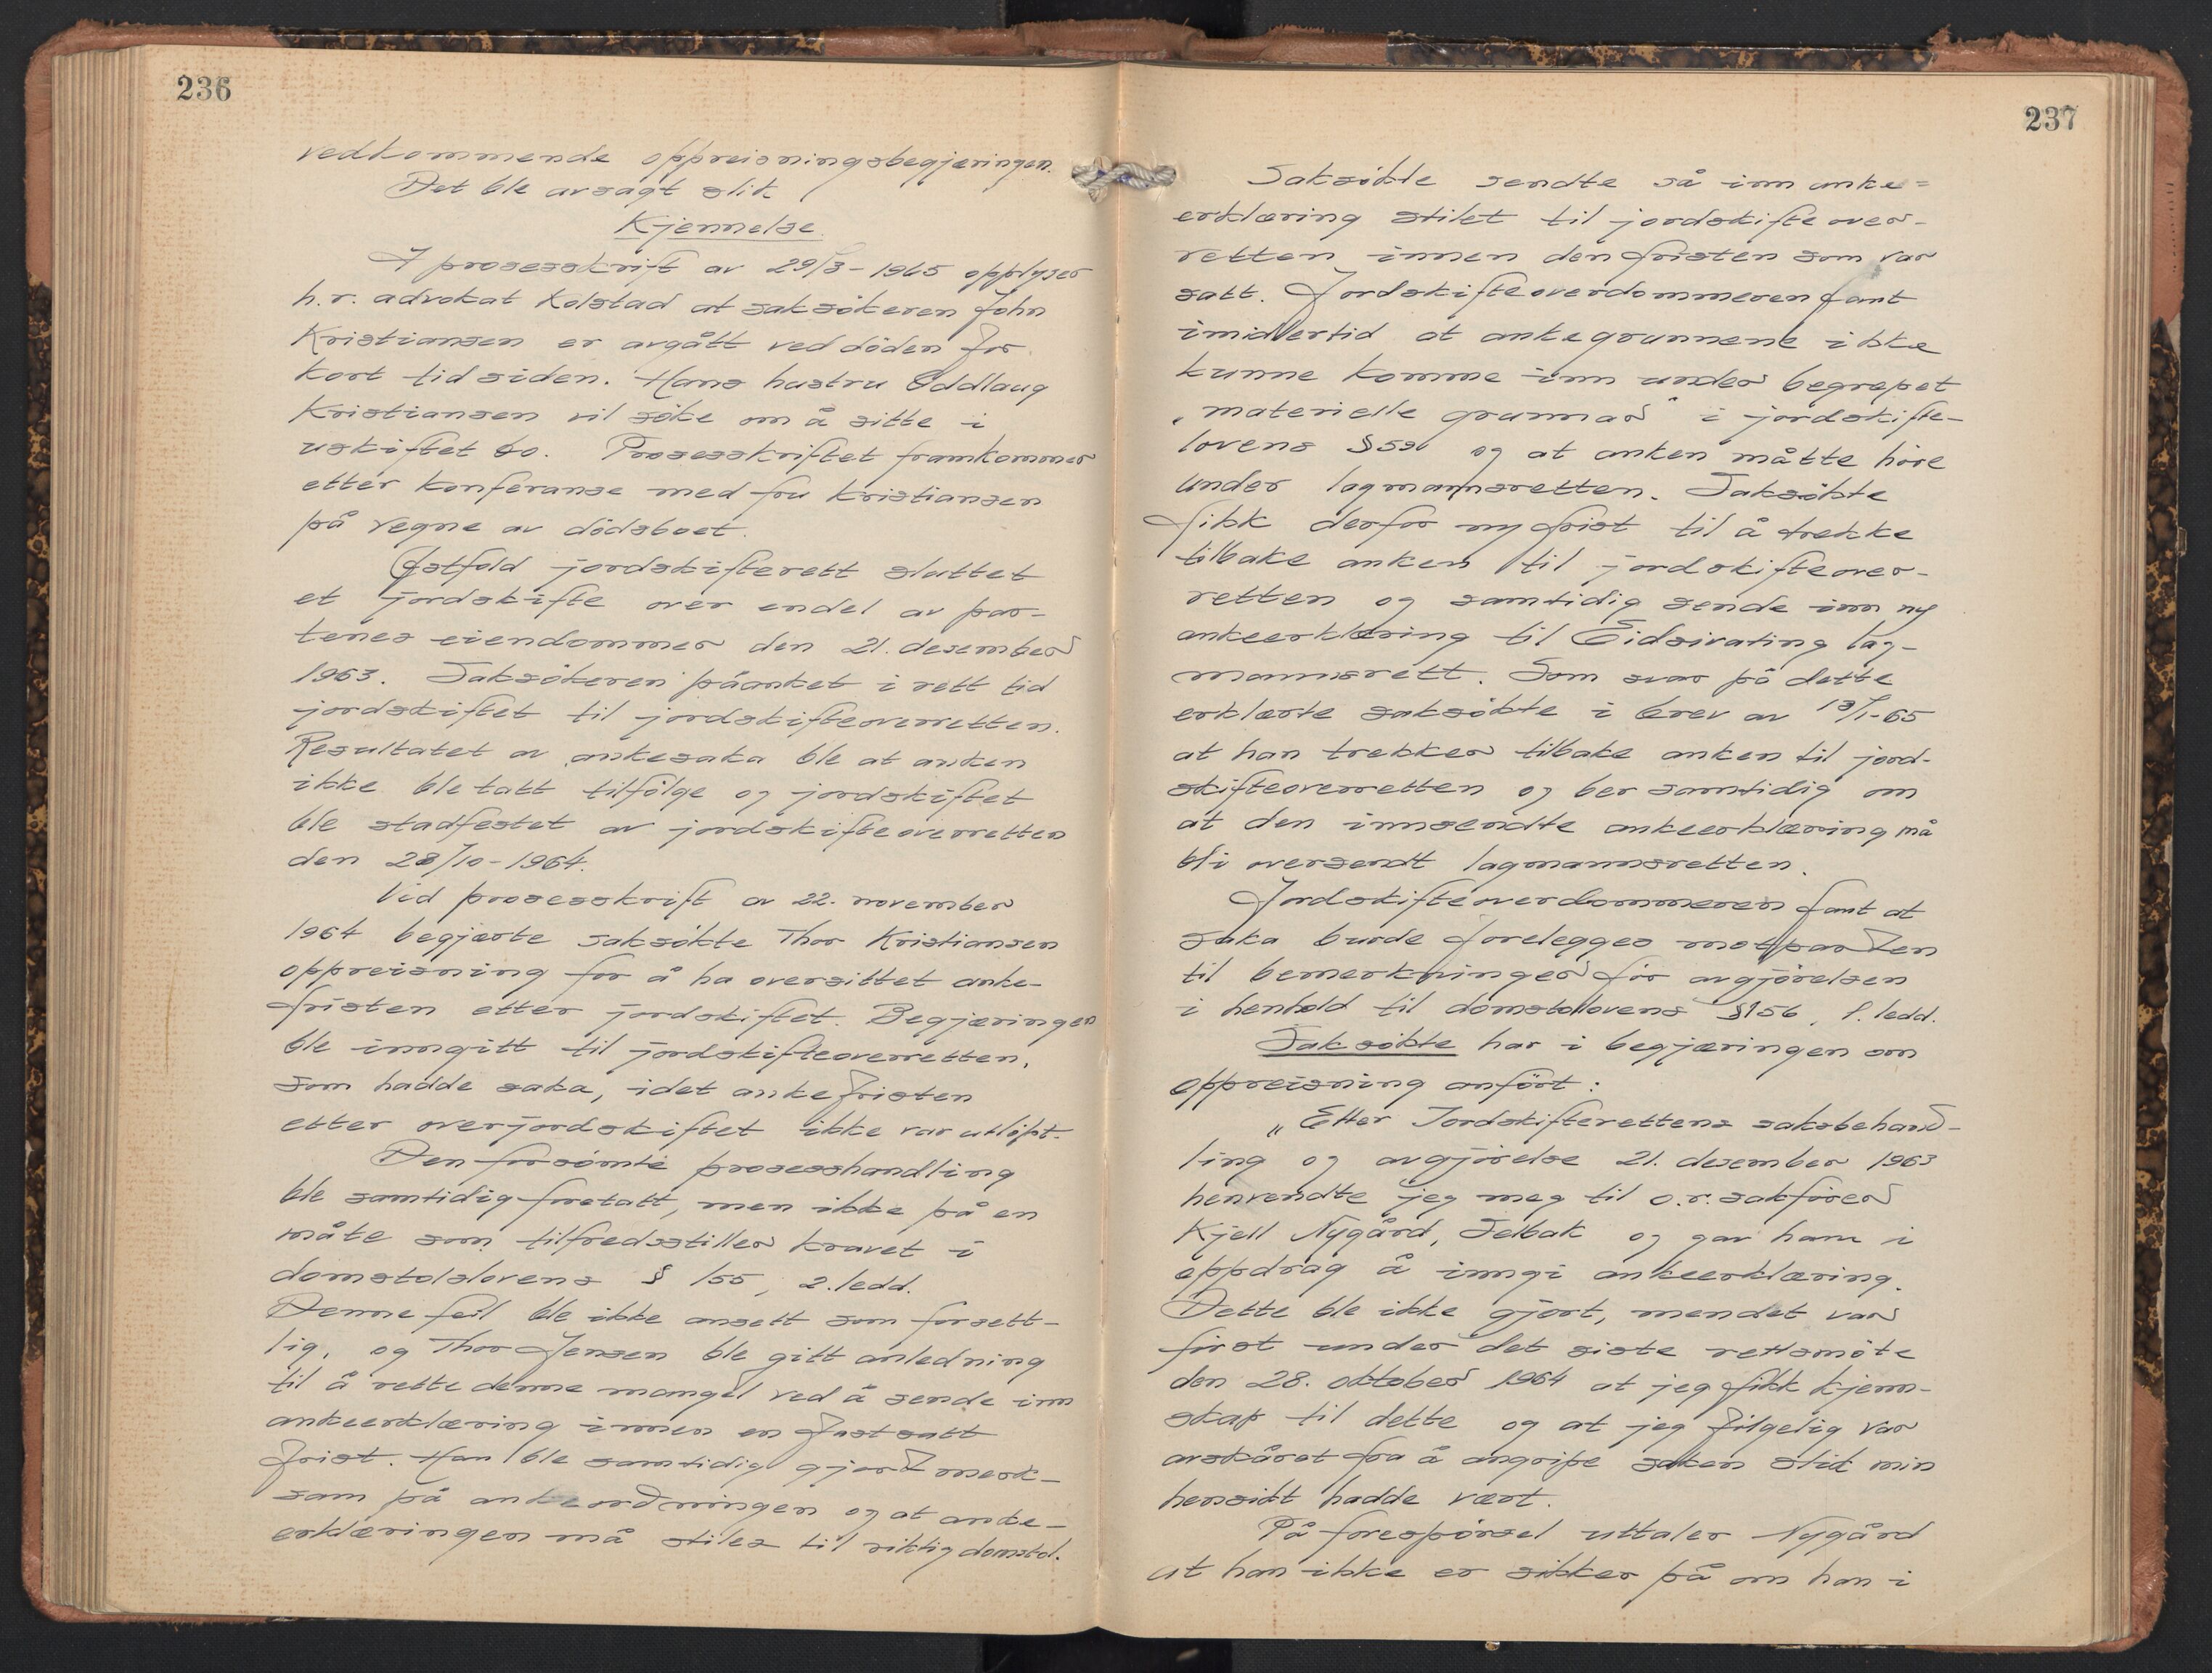 236
vedkommende oppreisningsbegjæringen.
Det ble avsagt slik
Kjennelse.
I prosesskrift av 29/3-1965 opplyser
h.r. advokat Kolstad at saksökeren John
Kristiansen er avgått ved döden for
kort tid siden. Hans hustru Oddlaug
Kristiansen vil söke om å sitte i
uskiftet bo. Prosesskriftet framkommer
etter konferanse med fru Kristiansen
på vegne av dödsboet.
Østfold jordskifterett sluttet
et jordskifte over endel av par-
tenes eiendommer den 21. desember
1963. Saksökeren påanket i rett tid
jordskiftet til jordskifteoverretten.
Resultatet av ankesaka ble at anken
ikke ble tatt tilfölge og jordskiftet
ble stadfestet av jordskifteoverretten
den 28/10-1964.
Vid prosesskrift av 22. november
1964 begjærte saksökte Thor Kristiansen
oppreisning for å ha oversittet anke-
fristen etter jordskiftet. Begjæringen
ble inngitt til jordskifteoverretten,
som hadde saka, idet ankefristen
etter overjordskiftet ikke var utlöpt.
Den forsömte prosesshandling
ble samtidig foretatt, men ikke på en
måte som tilfredsstiller kravet i
domstolslovens § 155, 2. ledd.
Denne feil ble ikke ansett som forsett-
lig, og Thor Jensen ble gitt anledning
til å rette denne mangel ved å sende inn
ankeerklæring innen en fastsatt
frist. Han ble samtidig gjort merk-
sam på ankeordningen og at anke-
erklæringen må stiles til riktig domstol.
237
Saksökte sendte så inn anke=
erklæring stilet til jordskifteover-
retten innen den fristen som var
satt. Jordskifteoverdommeren fant
imidlertid at ankegrunnene ikke
kunne komme inn under begrepet
„materielle grunnar" i jordskifte-
lovens § 59 og at anken måtte höre
under lagmannsretten. Saksökte
fikk derfor ny frist til å trekke
tilbake anken til jordskifteover-
retten og samtidig sende inn ny
ankeerklæring til Eidsivating lag-
mannsrett. Som svar på dette
erklærte saksökte i brev av 13/1-65
at han trekker tilbake anken til jord-
skifteoverretten og ber samtidig om
at den innsendte ankeerklæring må
bli oversendt lagmannsretten.
Jordskifteoverdommeren fant at
saka burde forelegges motparten
til bemerkninger för avgjörelsen
i henhold til domstollovens § 156, 1. ledd.
Saksökte har i begjæringen om
oppreisning anfört:
„Etter Jordskifterettens saksbehand-
ling og avgjörelse 21. desember 1963
henvendte jeg meg til o.r. sakförer
Kjell Nygård, Selbak og gav ham i
oppdrag å inngi ankeerklæring.
Dette ble ikke gjort, men det var
först under det siste rettsmöte
den 28. oktober 1964 at jeg fikk kjenn-
skap til dette og at jeg fölgelig var
avskåret fra å angripe saken slik min
hensikt hadde vært.
På forespörsel uttaler Nygård
at han ikke er sikker på om han i